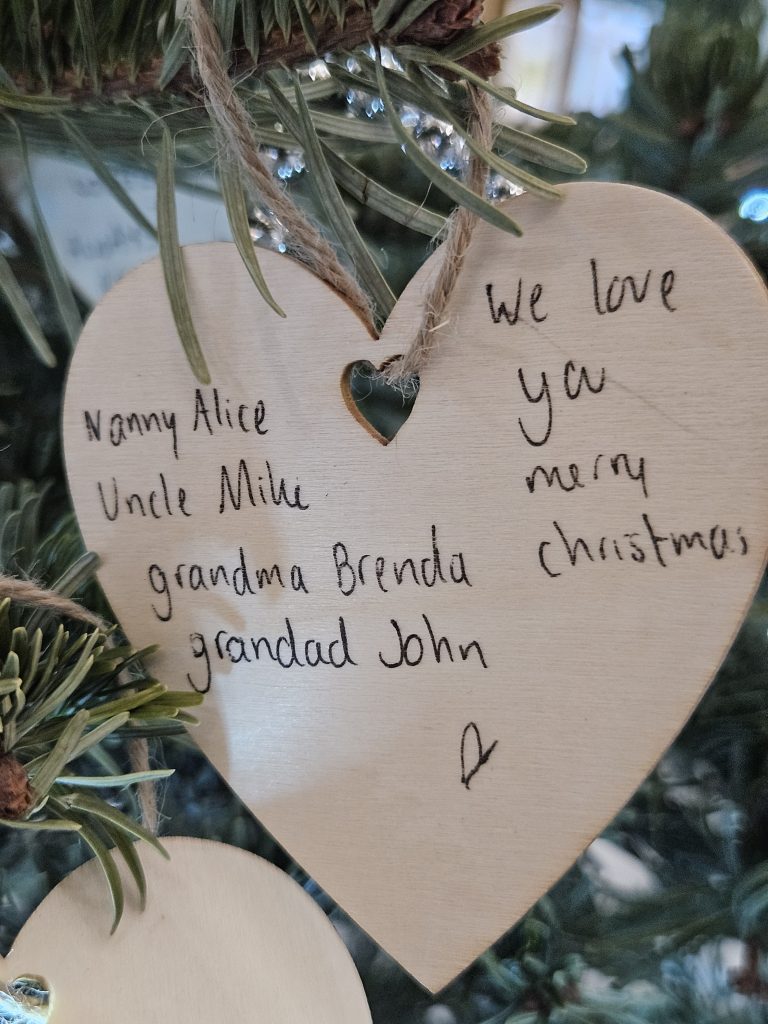 Nanny Alice
Uncle Mike
grandma Brenda
grandad John
We love
ya
merry
christmas